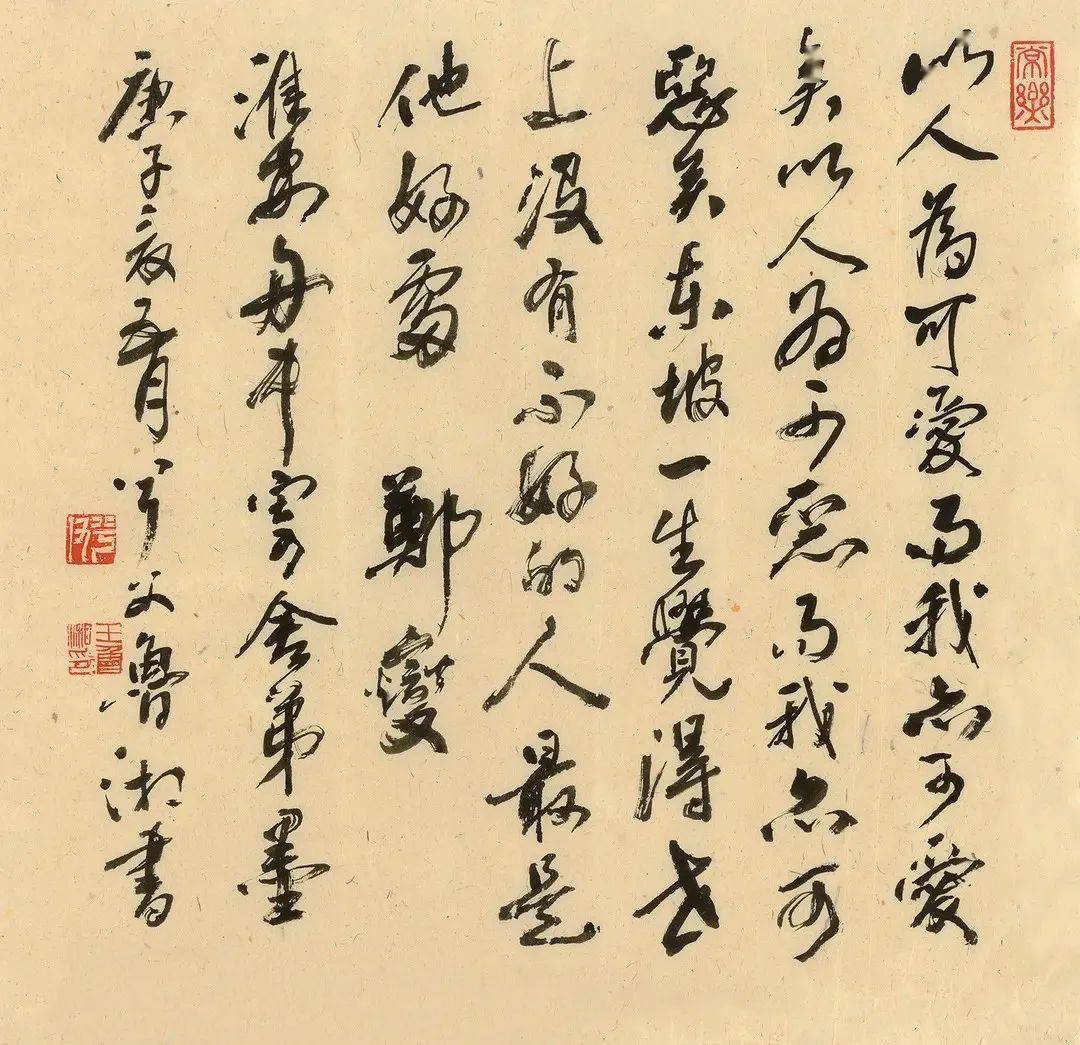 常樂
以人為可愛而我亦可愛
矣以人為可惡而我亦可
惡矣東坡一生覺得世
上沒有不好的人最是
他好處 鄭燮
淮安舟中寄舍弟墨
庚子夏五月 父魯湘書
王魯湘印